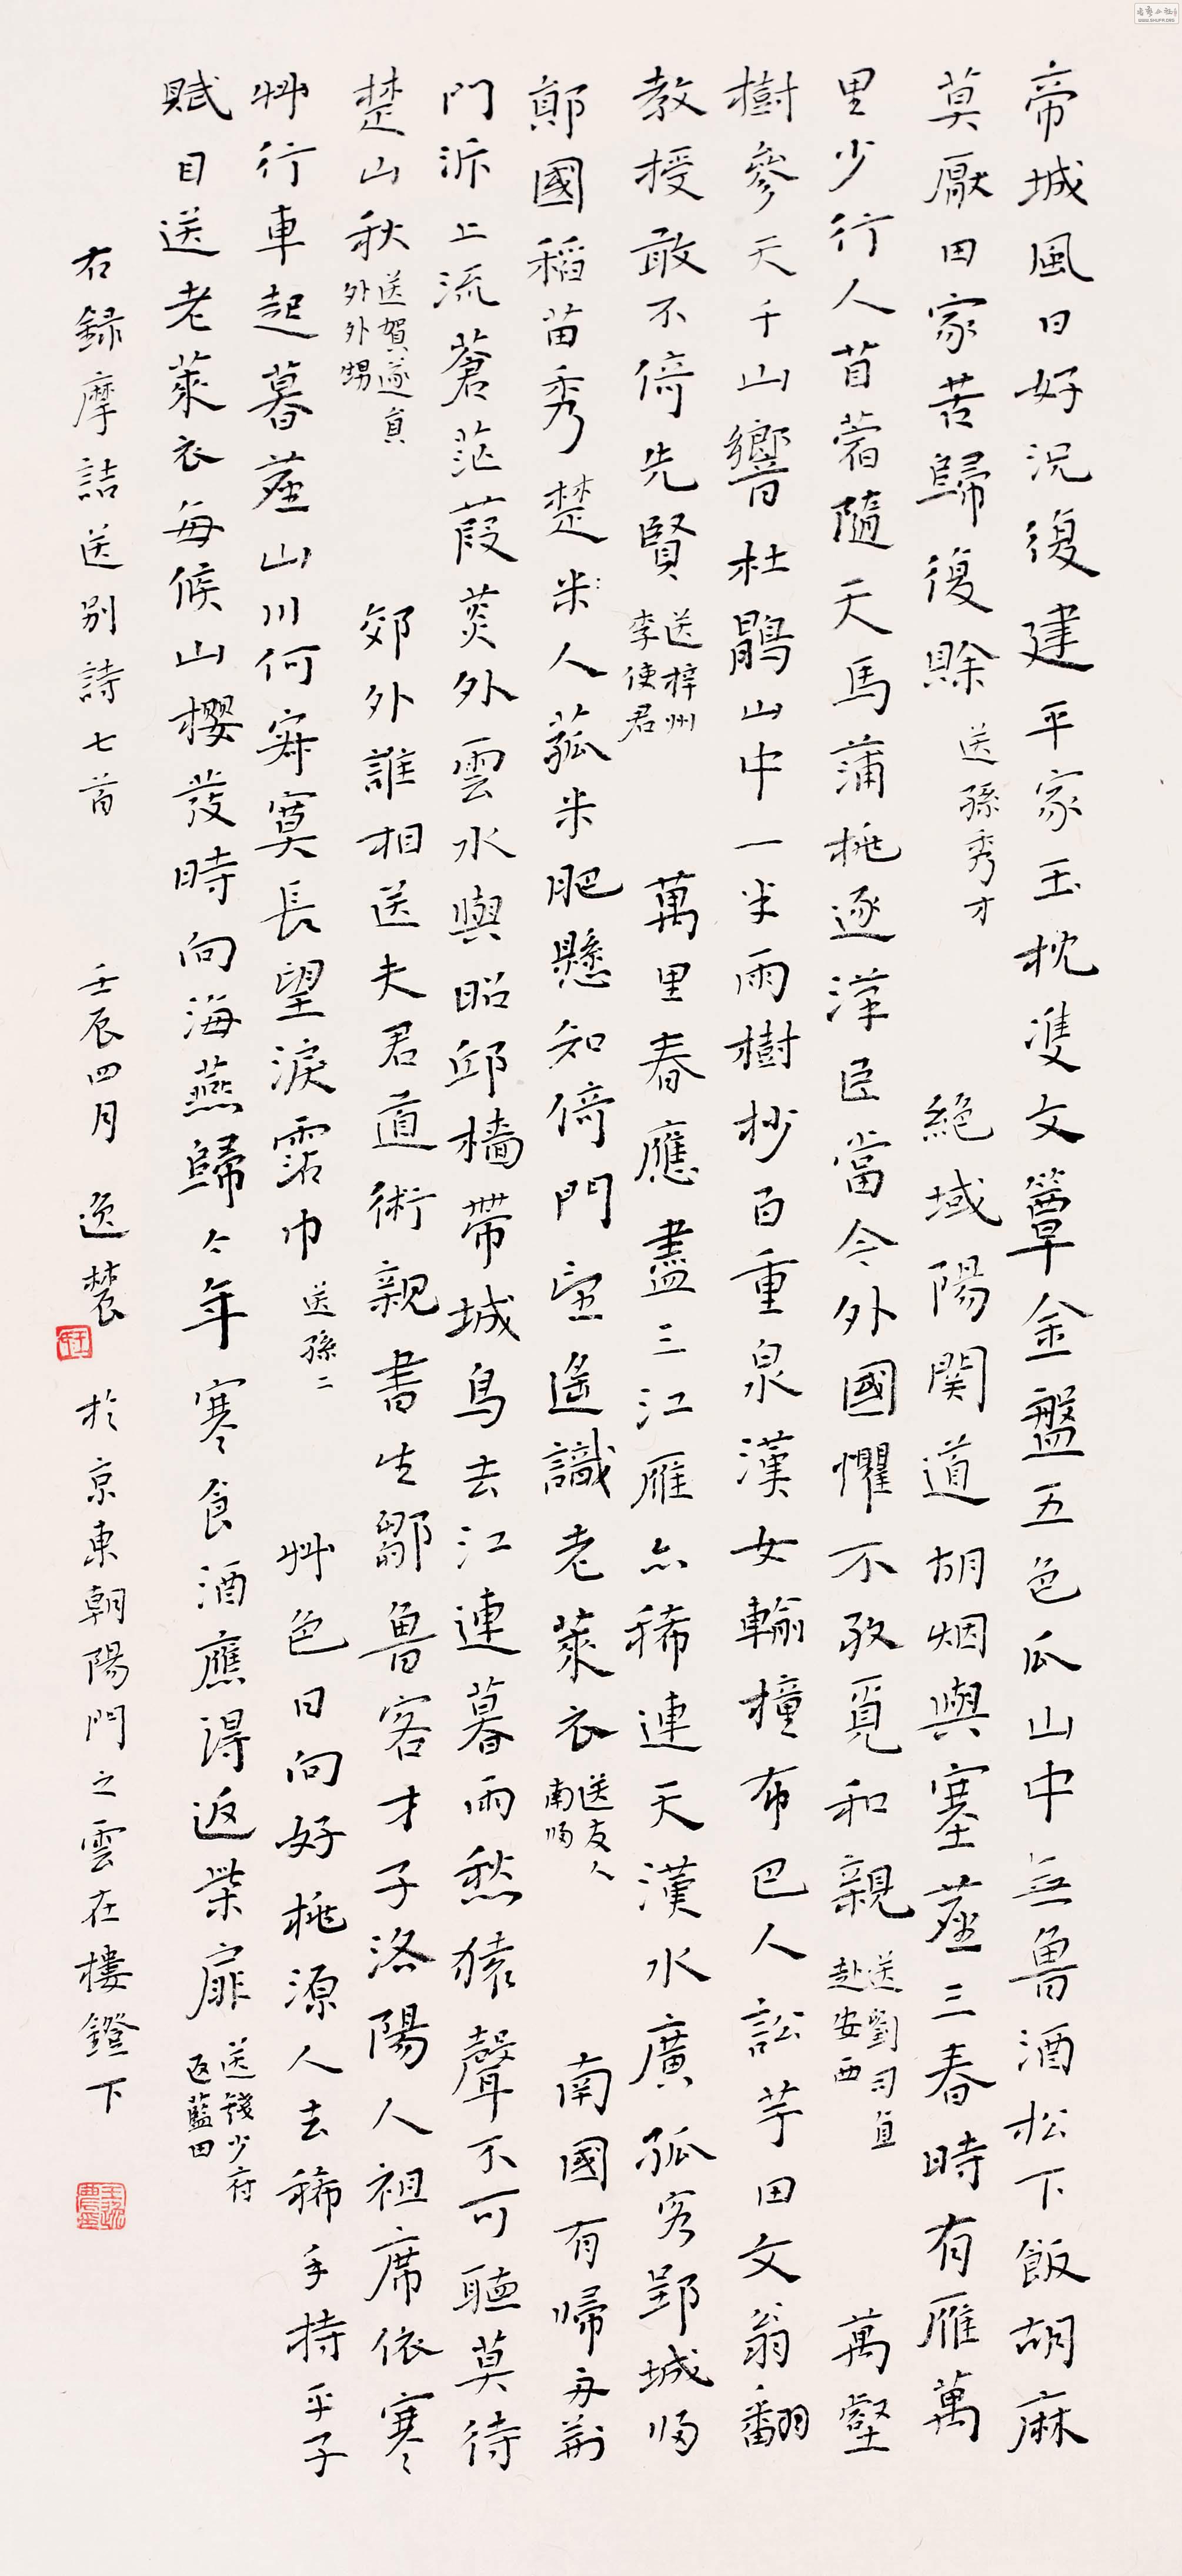 帝城風日好況復建平家玉枕雙文簟金盤五色瓜山中無魯酒松下飯胡麻
莫厭田家苦歸復賒 送孫秀才 絕域陽関道胡烟與塞塵三春時有雁萬
里少行人苜蓿隨天馬蒲桃逐漢臣當令外國懼不敢覓和親 送劉司直赴安西 萬壑
樹參天千山響杜鵑山中一半雨樹杪百重泉漢女輸橦布巴人訟芋田文翁翻
教授敢不倚先賢 送梓州李使君 萬里春應盡三江雁亦稀連天漢水廣孤客郢城歸
鄭國稻苗秀楚米人菰米肥懸知倚門望遙識老萊衣 送友人南歸 南國有歸舟荊
門泝上流蒼茫葭菼外雲水與昭邱檣帶城烏去江連暮雨愁猿聲不可聽莫待
楚山秋 送賀遂員外外甥 郊外誰相送夫君道術親書生鄒魯客才子洛陽人祖席依寒
艸行車起暮塵山川何寂寞長望淚霑巾 送孫二 艸色日向好桃源人去稀手持平子
賦目送老萊衣每候山櫻發時向海燕歸今年寒食酒應得返柴扉 送錢少府返藍田
右錄摩詰送別詩七首 壬辰四月 逸農 於京東朝陽門之雲在樓鐙下